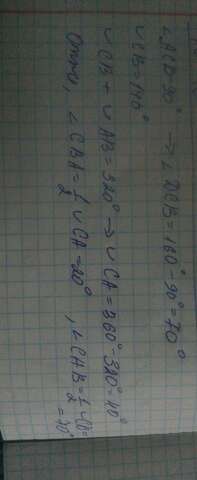 ∠ACD=90° → ∠DCB=160°-90°=70°
∪CB=140°
∪CB+∪AB=320° → ∪CA=360°-320°=40°
Отже, ∠CBA=1/2∪CA=20°, ∠CAB=1/2∪CB=70°